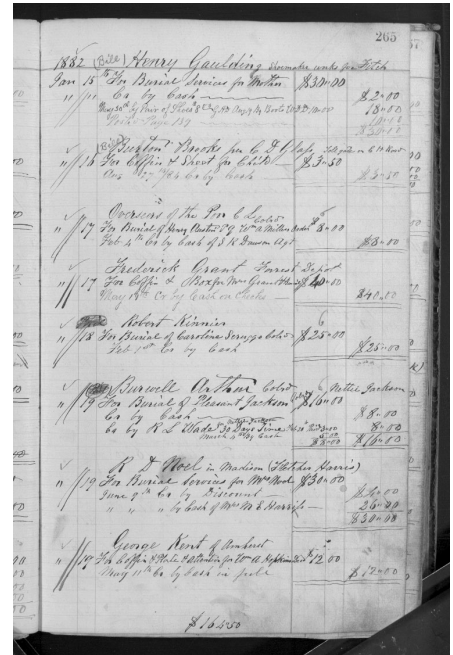 265
1882 (Bill) Henry Gaulding Shoemaker works for Fitch
Jan 15th For Burial Services for Mother $30.00
" 11 Cr by Cash $2.00
18.00
Page 139 10.00
$30.00
(Bill) Burton Brooks per C. D. Glass
" 16 For Coffin & Shroud for Child $3.50
Aug 27th/84 Cr by Cash $3.50
Overseers of the Poor C. L. Cold
" 17 For Burial of Henry $8.00
Feb 4th Cr by Cash of S K Dawson Agt $8.00
Frederick Grant Forrest Depot
" 17 For Coffin & Box for Mrs Grant $40.00
May 18th Cr by Cash on Checks $40.00
Robert Kinnier
" 18 For Burial of Caroline Cold $25.00
Feb 1st Cr by Cash $25.00
Burwell Arthur Cold Nettie Jackson
" 19 For Burial of Pleasant Jackson $16.00
Cr by Cash $8.00
Cr by R L Wade 30 Days Time 8.00
March 4th By Cash $8.00 $16.00
R D Noel in Madison (Fletcher Harris)
" 19 For Burial Services for Mrs Noel $30.00
June 9th Cr by Discount $4.00
" " " by Cash of Mrs M E Harris 26.00
$30.00
George Kent of Amherst
" 19 For Coffin & Plate & Attention for Wm A Hopkins $12.00
May 11th Cr by Cash in full $12.00
$164.50